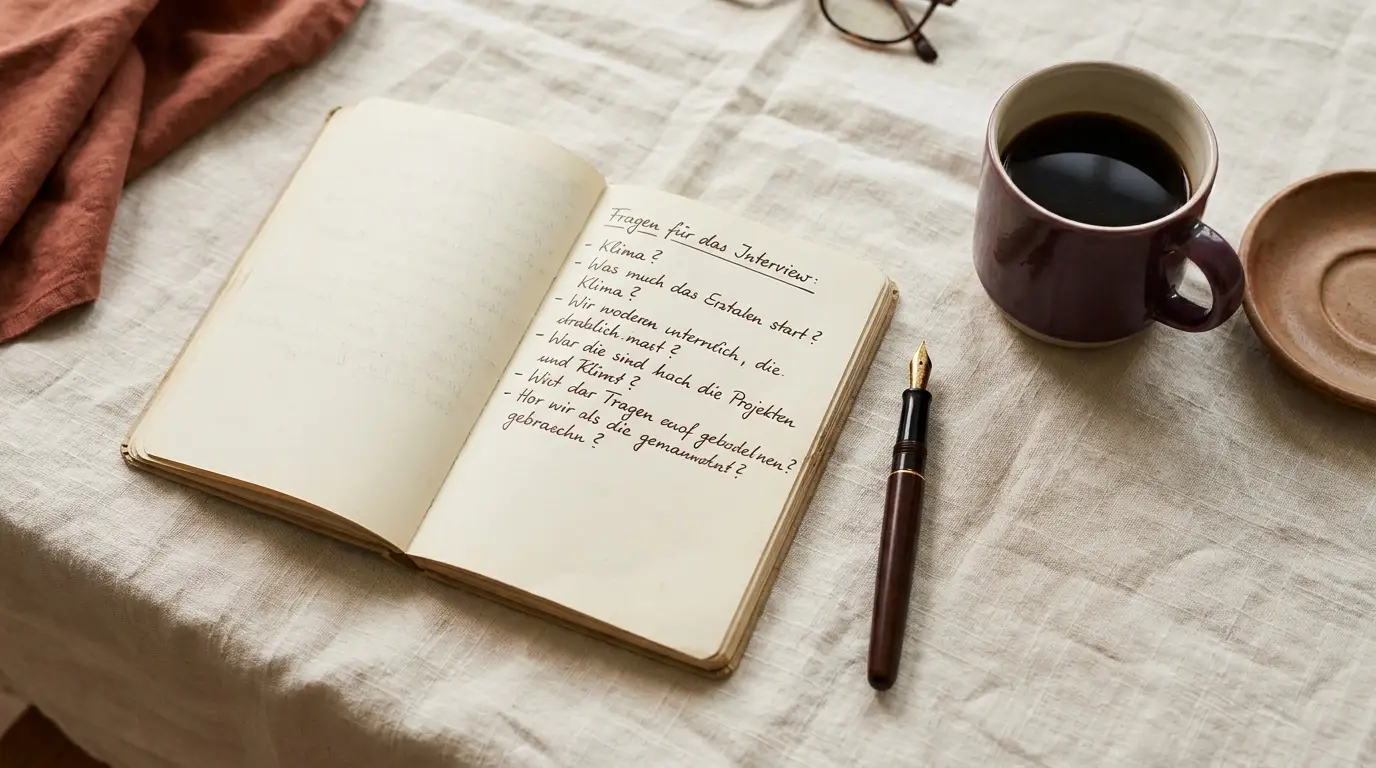 Fragen für das Interview:
- Klima?
- Was much das Erztalen start?
Klima?
- Wir woderen unternlich, die.
drablich mast?
- War die sind hach die Projekten
und Klimst?
- Wist das Tragen euof gebodelnen?
- Hor wir als die gemanwohnt?
gebraechn?